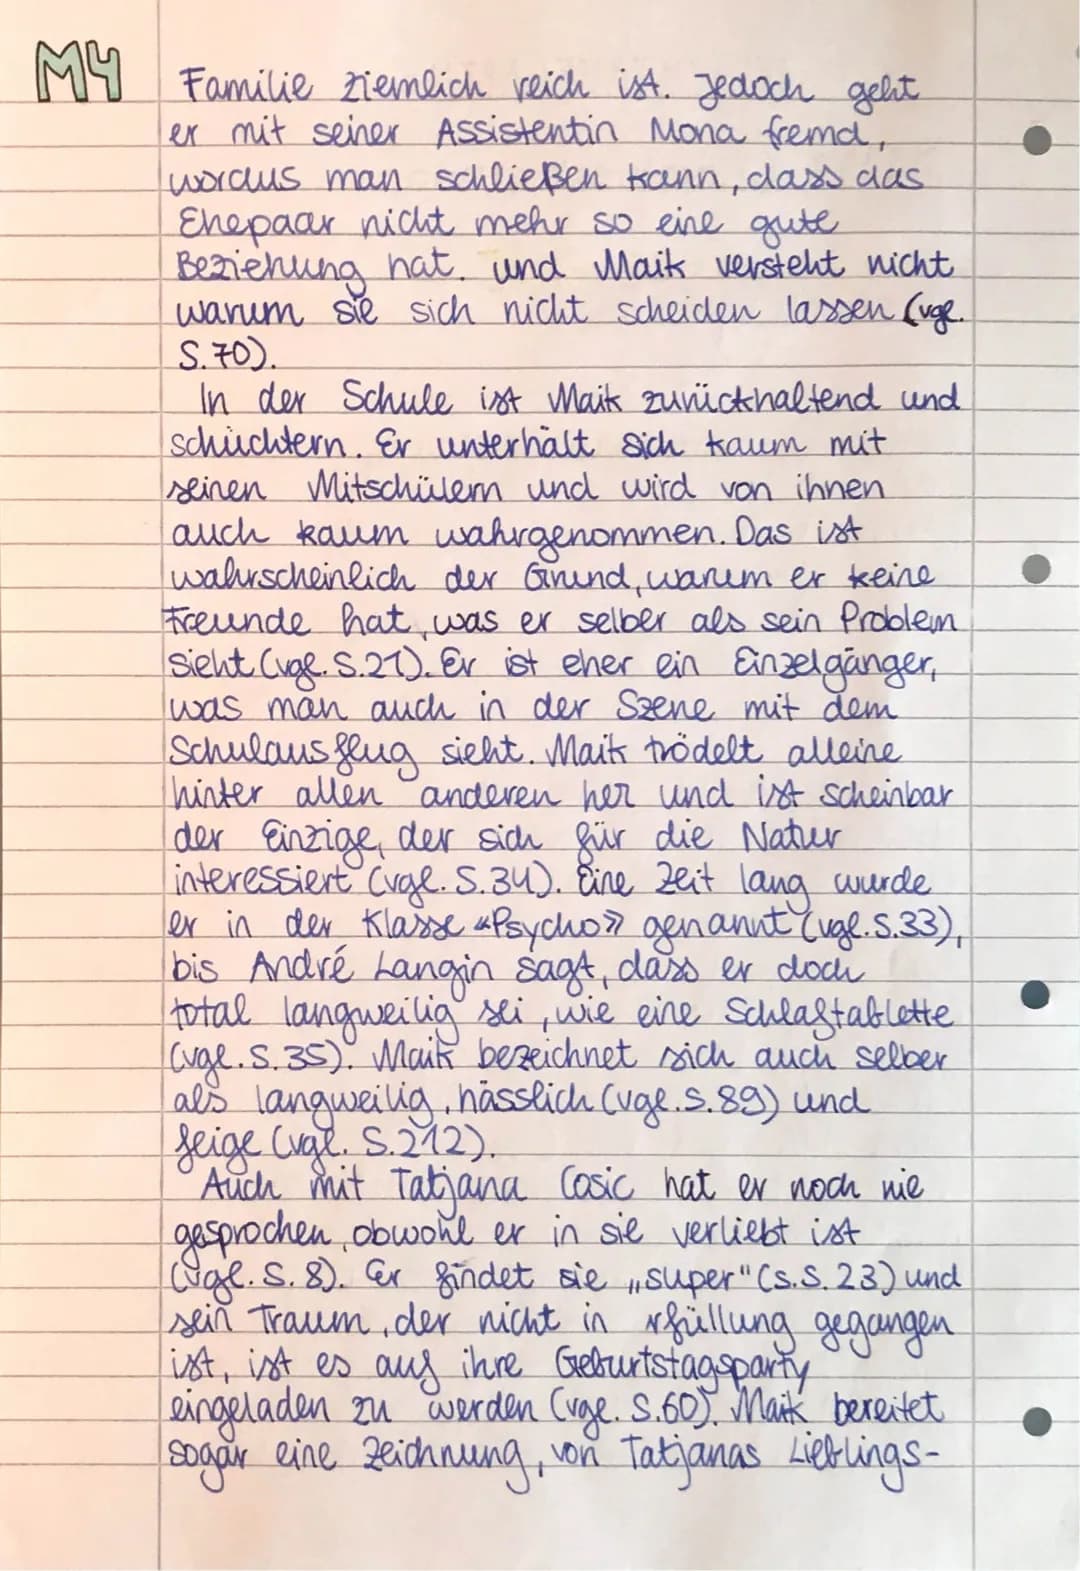 M4
Familie ziemlich reich ist. Jedoch geht
er mit seiner Assistentin Mona fremd,
woraus man schließen kann, dass das
Ehepaar nicht mehr so eine gute
Beziehung hat. und Maik versteht nicht
warum sie sich nicht scheiden lassen (vgl.
S.70).
In der Schule ist Maik zurückhaltend und
schüchtern. Er unterhält sich kaum mit
seinen Mitschülern und wird von ihnen
auch kaum wahrgenommen. Das ist
wahrscheinlich der Grund, warum er keine
Freunde hat, was er selber als sein Problem
sieht (vgl. S.21). Er ist eher ein Einzelgänger,
was man auch in der Szene mit dem
Schulausflug sieht. Maik trödelt alleine
hinter allen anderen her und ist scheinbar
der Einzige, der sich für die Natur
interessiert (vgl. S.34). Eine Zeit lang wurde
er in der Klasse «Psycho» genannt (vgl. S.33),
bis André Langin sagt, dass er doch
total langweilig sei, wie eine Schlaftablette
(vgl. S. 35). Maik bezeichnet sich auch selber
als langweilig, hässlich (vgl. S. 89) und
feige (vgl. S.212).
Auch mit Tatjana Cosic hat er noch nie
gesprochen, obwohl er in sie verliebt ist
(vgl. S. 8). Er findet sie „super" (s.S. 23) und
sein Traum, der nicht in rfüllung gegangen
ist, ist es auf ihre Geburtstagsparty
eingeladen zu werden (vgl. S.60). Maik bereitet
sogar eine Zeichnung, von Tatjanas Lieblings-